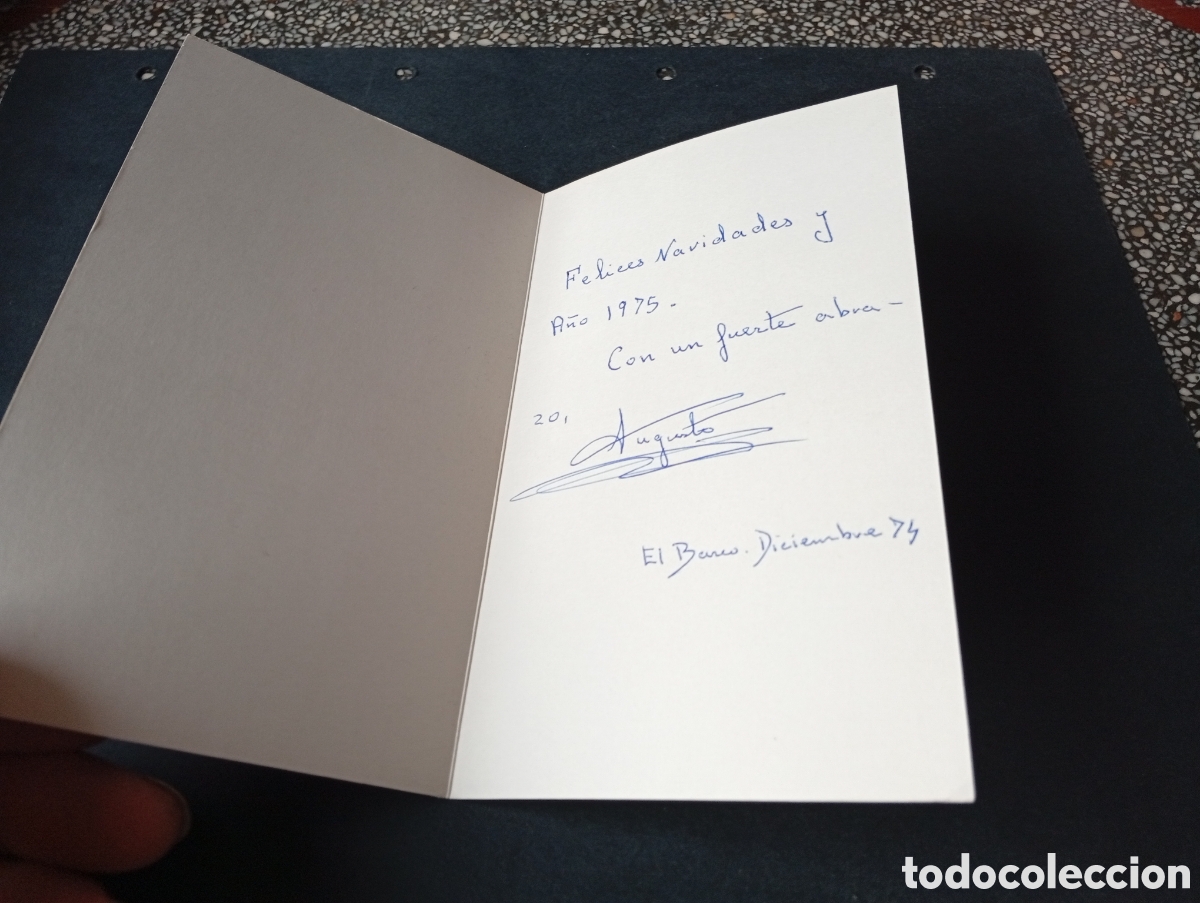 Felices Navidades y
Año 1975.
Con un fuerte abra-
zo,
Augusto
El Barco. Diciembre 74
todocoleccion